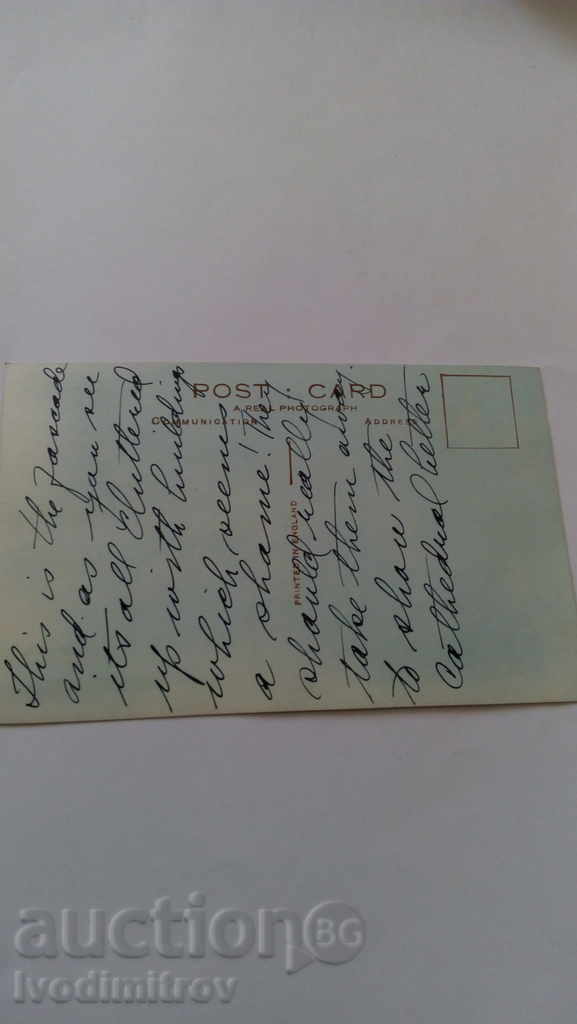 POST CARD
A REAL PHOTOGRAPH
COMMUNICATION
ADDRESS
PRINTED IN ENGLAND
This is the Fascade
and as you see
its all Cluttered
up with buildings
which seems
a shame! They
should really
take them away.
to show the
Cathedral better
auctionBG
Ivodimitrov